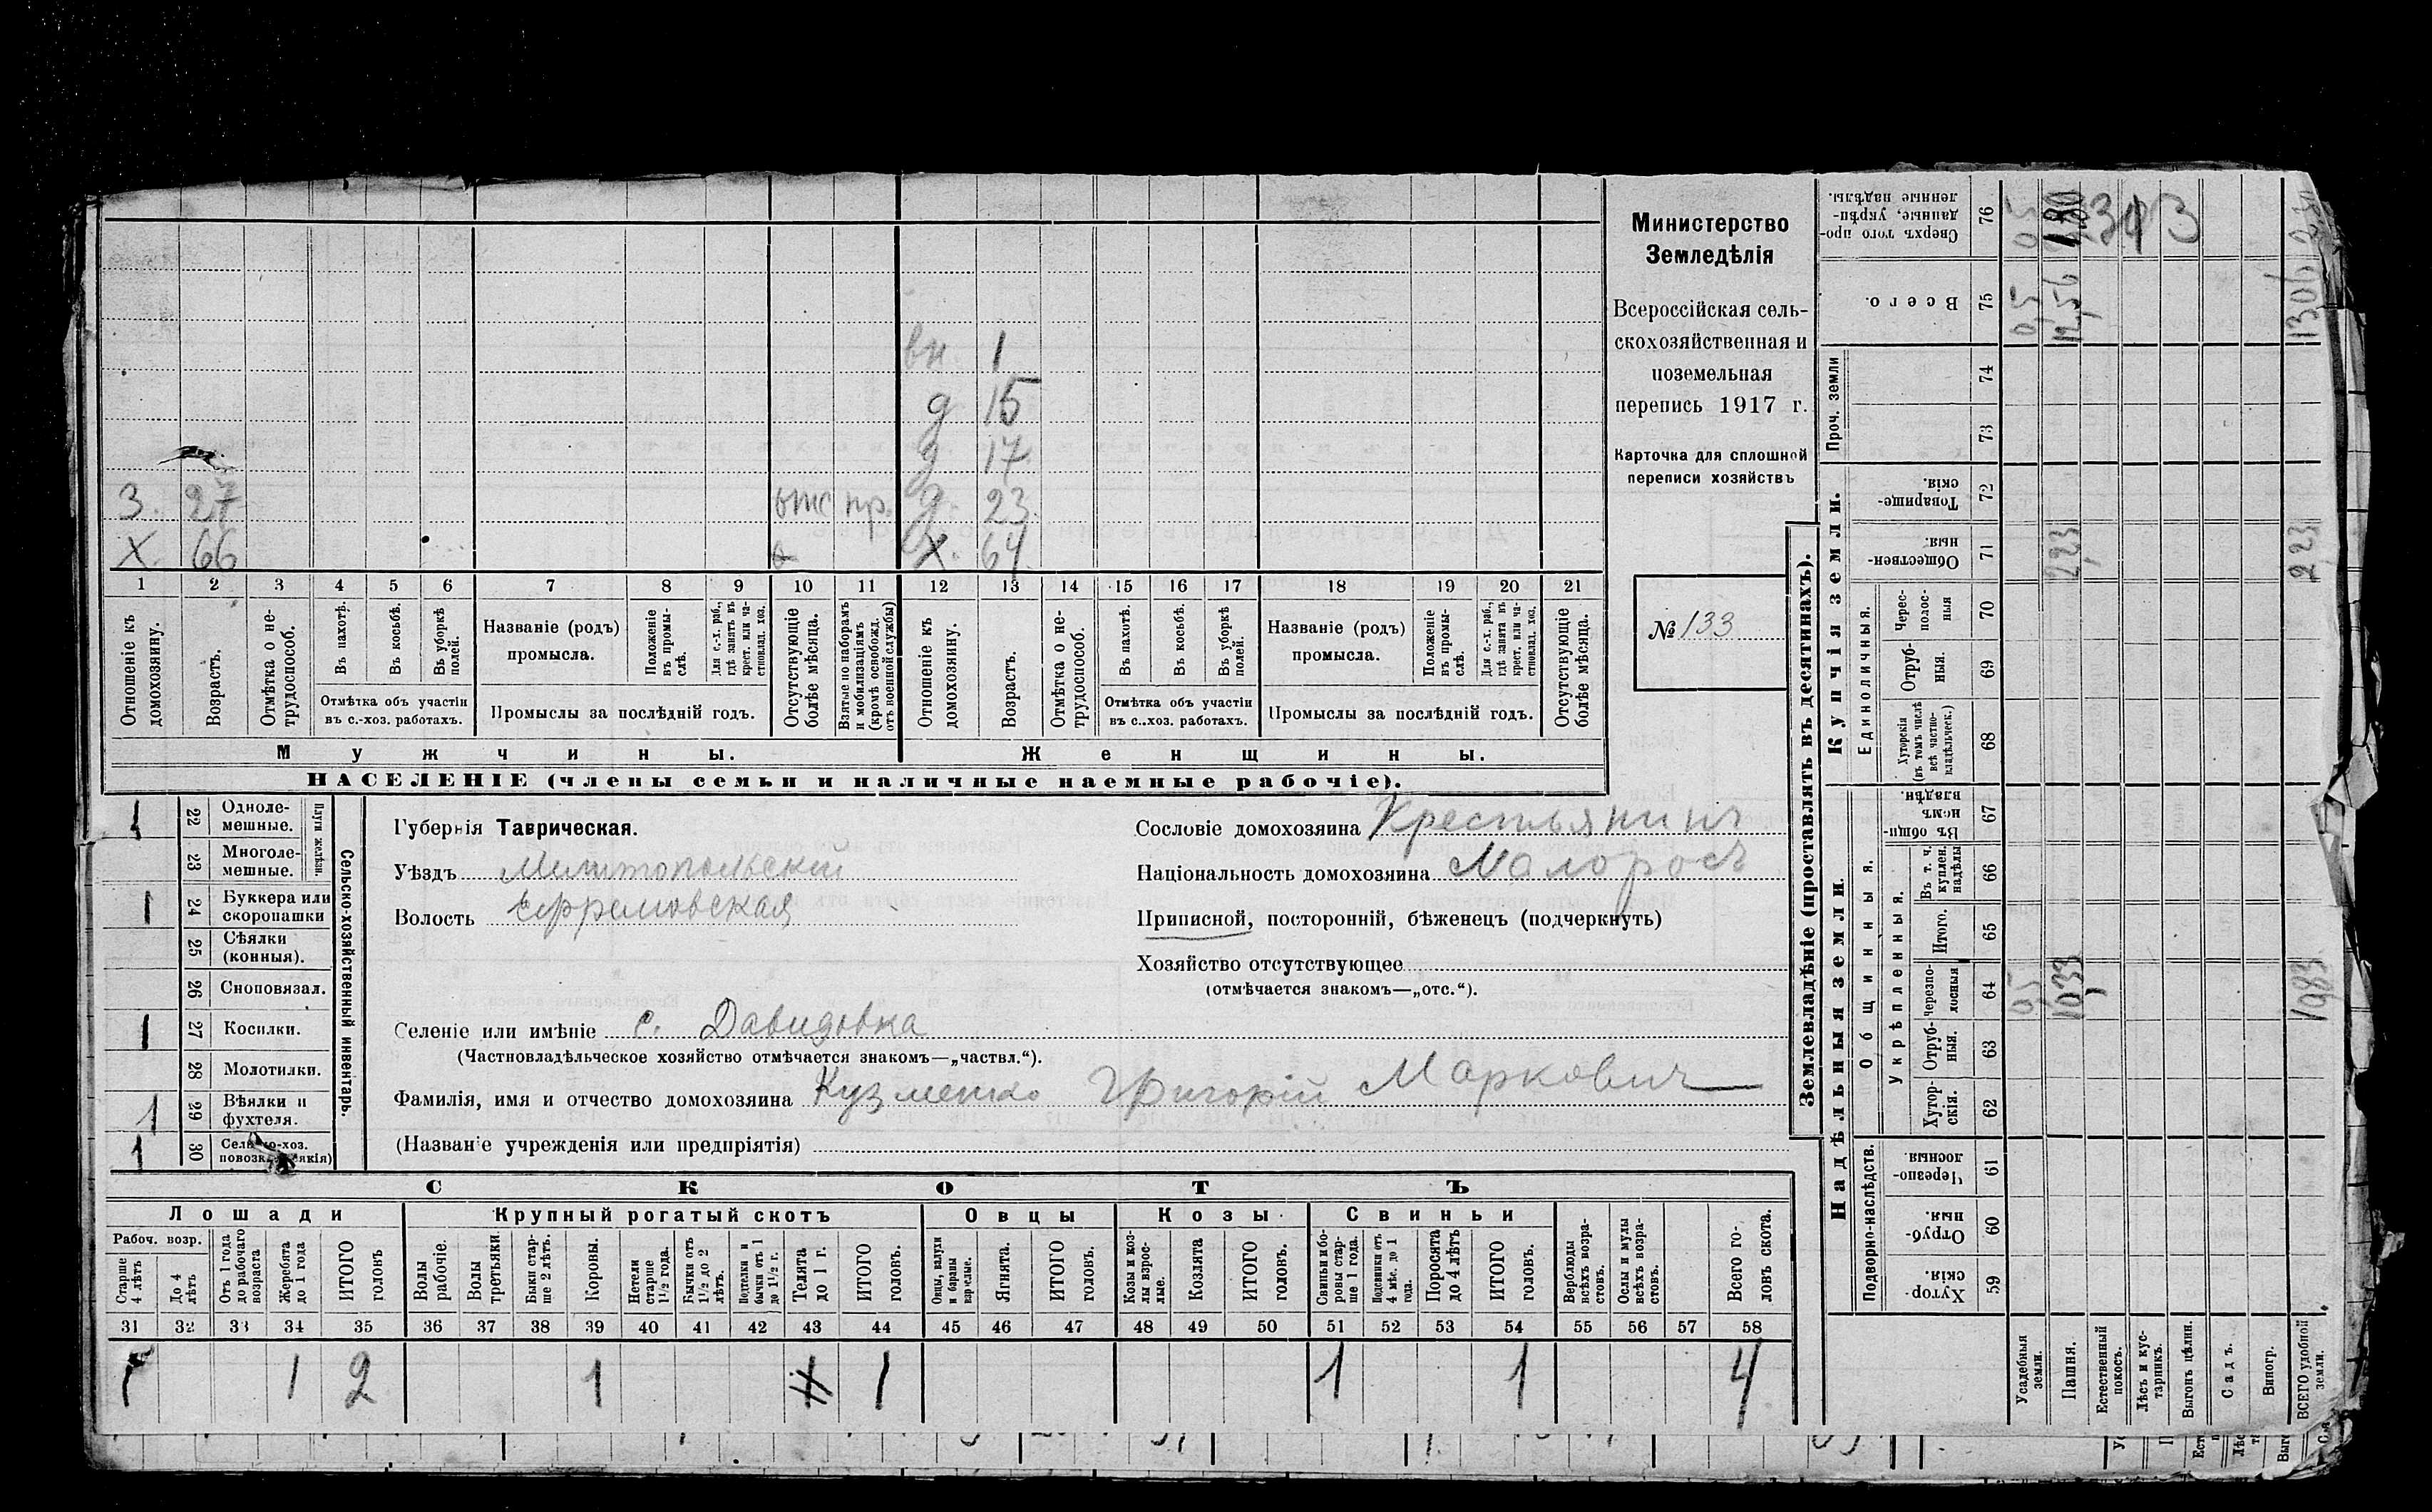 вн 1
д 15
д 17
З. 27 отс пр. д. 23
Х. 66 Х. 64
1 2 3 4 5 6 7 8 9 10 11 12 13 14 15 16 17 18 19 20 21
Отношеніе къ домохозяину.
Возрастъ.
Отмѣтка о не-трудоспособ.
Въ пахотѣ.
Въ косьбѣ.
Въ уборкѣ полей.
Отмѣтка объ участіи
въ с.-хоз. работахъ.
Названіе (родъ)
промысла.
Положеніе въ промы-слѣ.
Для с.-х. раб., гдѣ занятъ въ крест. или ча-стновлад. хоз.
Промыслы за послѣдній годъ.
Отсутствующіе болѣе мѣсяца.
Взятые по наборамъ и мобилизаціямъ (кромѣ освобожд. отъ военной службы)
Отношеніе къ домохозяину.
Возрастъ.
Отмѣтка о не-трудоспособ.
Въ пахотѣ.
Въ косьбѣ.
Въ уборкѣ полей.
Отмѣтка объ участіи
въ с.-хоз. работахъ.
Названіе (родъ)
промысла.
Положеніе въ промы-слѣ.
Для с.-х. раб., гдѣ занята въ крест. или ча-стновлад. хоз.
Промыслы за послѣдній годъ.
Отсутствующіе болѣе мѣсяца.
Мужчины. Женщины.
НАСЕЛЕНІЕ (члены семьи и наличные наемные рабочіе).
Министерство
Земледѣлія
Всероссійская сель-
скохозяйственная и
поземельная
перепись 1917 г.
Карточка для сплошной
переписи хозяйствъ
№ 133
Сельско-хозяйственный инвентарь.
Плуги желѣзн.
1 22 Одноле-мешные.
23 Многоле-мешные.
1 24 Буккера или скоропашки
25 Сѣялки (конныя).
26 Сноповязал.
1 27 Косилки.
28 Молотилки.
1 29 Вѣялки и фухтеля.
1 30
Губернія Таврическая.
Уѣздъ Мелитопольскій
Волость Ефремовская
Сословіе домохозяина Крестьянинъ
Національность домохозяина Малоросъ
Приписной, посторонній, бѣженецъ (подчеркнуть)
Хозяйство отсутствующее
(отмѣчается знакомъ—„отс.“).
Селеніе или имѣніе с. Давидовка
(Частновладѣльческое хозяйство отмѣчается знакомъ—„частвл.“).
Фамилія, имя и отчество домохозяина Кузменко Григорій Маркович
(Названіе учрежденія или предпріятія)
СКОТЪ
Лошади Крупный рогатый скотъ Овцы Козы Свиньи
Рабоч. возр.
Старше 4 лѣтъ
До 4 лѣтъ
Отъ 1 года до рабочаго возраста
Жеребята до 1 года
ИТОГО головъ
Волы рабочіе.
Волы третьяки.
Быки стар-ше 2 лѣтъ.
Коровы.
Нетели старше 1½ года.
Бычки отъ 1½ до 2 лѣтъ.
Телята до 1 г.
ИТОГО головъ.
Ягнята.
ИТОГО головъ.
Козы и коз-лы взрос-лые.
Козлята
ИТОГО головъ.
Свиньи и бо-ровы стар-ше 1 года.
Подсвинки отъ 4 мѣс. до 1 года.
Поросята до 4 лѣтъ
ИТОГО головъ.
Верблюды всѣхъ возра-стовъ.
Ослы и мулы всѣхъ возра-стовъ.
Всего го-ловъ скота.
31 32 33 34 35 36 37 38 39 40 41 42 43 44 45 46 47 48 49 50 51 52 53 54 55 56 57 58
1 1 2 1 1 1 1 4
Землевладѣніе (проставлять въ десятинахъ).
Надѣльныя земли. Купчія земли. Проч. земли
Подворно-наслѣдств.
Общинныя.
Укрѣпленныя.
Единоличныя.
Хутор-скія. 59
Отруб-ныя. 60
Черезпо-лосныя 61
Хутор-скія. 62
Отруб-ныя. 63
Черезпо-лосныя 64
Итого. 65
Въ т. ч. куплен. надѣлы 66
Въ общи-номъ владѣн. 67
Хуторскія (въ томъ числѣ всѣ частно-владѣльческ.) 68
Отруб-ныя. 69
Черес-полос-ныя 70
Обществен-ныя. 71
Товарище-скія. 72
73
74
Всего. 75
Сверхъ того про-данные, укрѣп-ленные надѣлы. 76
Усадебныя земли. 05 05
Пашня. 1033 2,23 12,56
Естественный покосъ.
Лѣсъ и кус-тарникъ.
Выгонъ цѣлин.
Садъ.
Виногр.
ВСЕГО удобной земли. 1083 2,23 1306